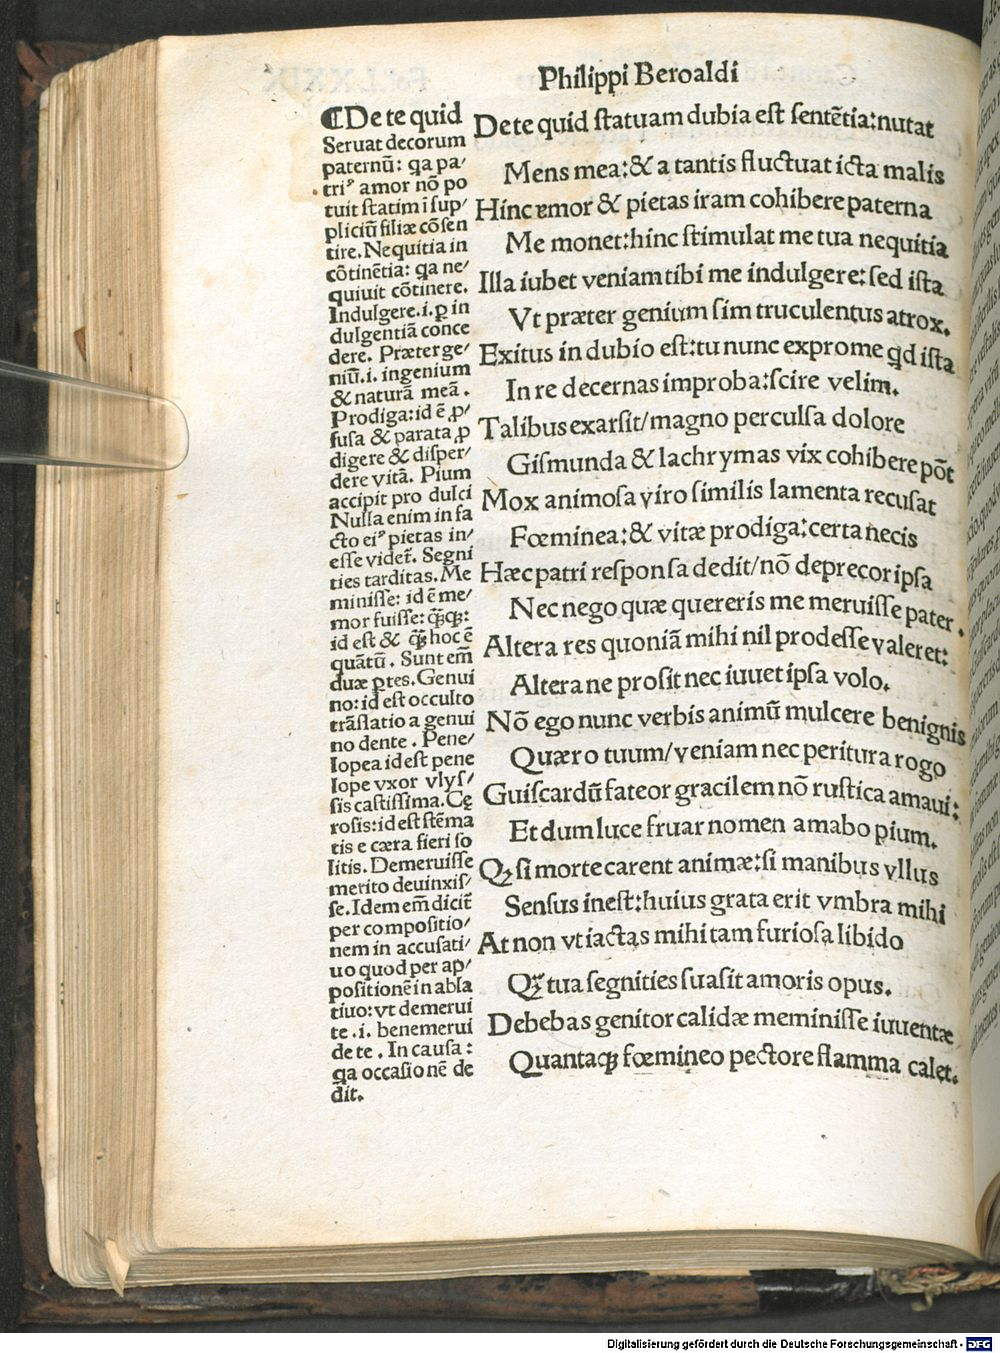 Philippi Beroaldi
¶De te quid
Seruat decorum
paternū: qa pa/
triꝰ amor nō po
tuit ſtatim ī ſup/
pliciū filiæ cōſen
tire. Nequitia in
cōtinētia: qa ne/
quiuit cōtinere.
Indulgere.i. ꝑ in
dulgentiā conce
dere. Præter ge/
niū.i. ingenium
& naturā meā.
Prodiga: id ē ꝓ/
fuſa & parata ꝓ
digere & diſper/
dere vitā. Pium
accipit pro dulci
Nulla enim in fa
cto eiꝰ pietas in/
eſſe videt̄. Segni
ties tarditas. Me
miniſſe: id ē me/
mor fuiſſe: q̄ꝫqꝫ:
id eſt & q̄ꝫ hoc ē
quātū. Sunt em̄
duæ ꝑtes. Genui
no: id eſt occulto
trāſlatio a genui
no dente. Pene/
lopea id eſt pene
lope vxor vlyſ/
ſis caſtiſſima. Cę
roſis: id eſt ſtēma
tis e cæra fieri ſo
litis. Demeruiſſe
merito deuinxiſ/
ſe. Idem em̄ dicit̄
per compoſitio/
nem in accuſati/
uo quod per ap/
poſitionē in abla
tiuo: vt demerui
te .i. benemerui
de te. In cauſa:
qa occaſionē de
dit.
De te quid ſtatuam dubia eſt ſentētia: nutat
Mens mea: & a tantis fluctuat icta malis
Hinc amor & pietas iram cohibere paterna
Me monet: hinc ſtimulat me tua nequitia
Illa iubet veniam tibi me indulgere: ſed iſta
Vt præter genium ſim truculentus atrox.
Exitus in dubio eſt: tu nunc exprome qd iſta
In re decernas improba: ſcire velim.
Talibus exarſit/ magno perculſa dolore
Giſmunda & lachrymas vix cohibere pōt
Mox animoſa viro ſimilis lamenta recuſat
Fœminea: & vitæ prodiga: certa necis
Hæc patri reſponſa dedit/ nō deprecor ipſa
Nec nego quæ quereris me meruiſſe pater.
Altera res quoniā mihi nil prodeſſe valeret:
Altera ne proſit nec iuuet ipſa volo.
Nō ego nunc verbis animū mulcere benignis
Quæro tuum/ veniam nec peritura rogo
Guiſcardū fateor gracilem nō ruſtica amaui:
Et dum luce fruar nomen amabo pium.
Qꝫ ſi morte carent animæ: ſi manibus vllus
Senſus ineſt: huius grata erit vmbra mihi
At non vt iactas mihi tam furioſa libido
Qꝫ tua ſegnities ſuaſit amoris opus.
Debebas genitor calidæ meminiſſe iuuentæ
Quantaqꝫ fœmineo pectore flamma calet.
Digitalisierung gefördert durch die Deutsche Forschungsgemeinschaft - DFG